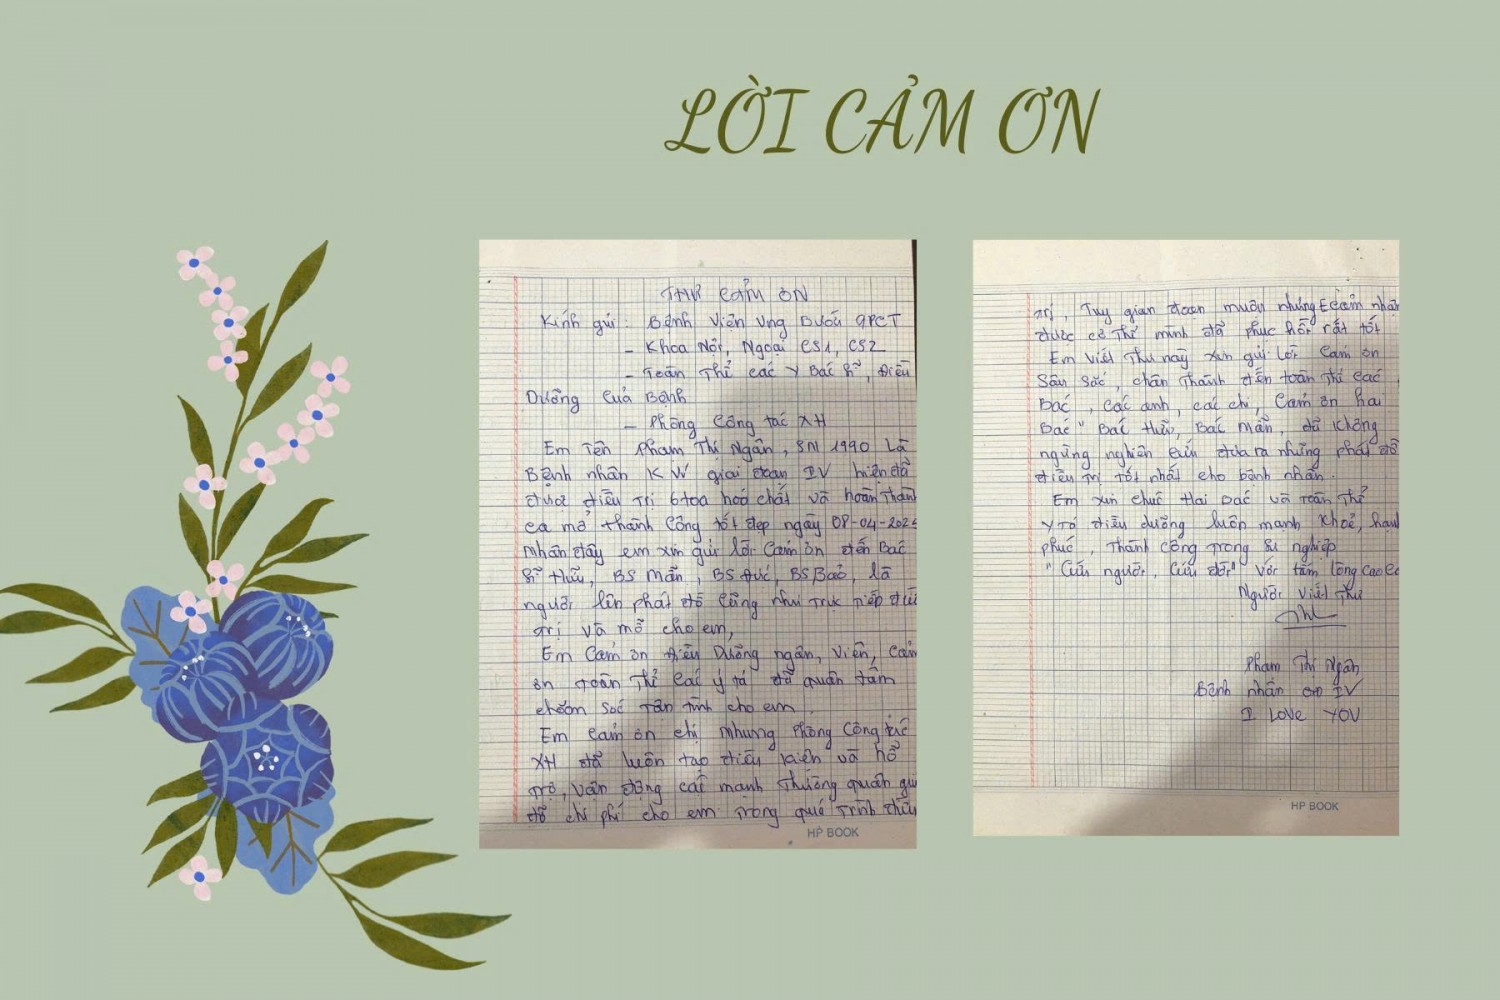 LỜI CẢM ƠN
THƯ CẢM ƠN
Kính gửi: Bệnh Viện Ung Bướu TPCT
- Khoa Nội, Ngoại CS1, CS2
- Toàn Thể các Y Bác sĩ, Điều
Dưỡng của Bệnh
- Phòng Công tác XH
Em Tên Phạm Thị Ngân, SN 1990 Là
Bệnh nhân K W giai đoạn IV hiện đã
được điều Trị 6 toa hoá chất và hoàn Thành
ca mổ thành Công tốt đẹp ngày 08-04-202
Nhân đây em xin gửi lời Cảm ơn đến Bác
sĩ Hữu, BS Mẫn, BS Đức, BS Bảo, là
người lên phát đồ cũng như Trực Tiếp điều
trị và mổ cho em,
Em Cảm ơn điều Dưỡng ngân, Viên, Cảm
ơn toàn Thể Các ý tá đã quan tâm
chăm sóc Tận Tình cho em.
Em Cảm ơn chị nhung Phòng Công tác
XH đã luôn tạo điều kiện và hỗ
trợ, Vận động các mạnh Thường quân giú
đỡ chi phí cho em Trong quá Trình điều
HP BOOK
trị, Tuy giai đoạn muộn nhưng E cảm nhận
được cơ Thể mình đã phục hồi rất tốt
Em Viết Thư này xin gửi Lời Cảm ơn
Sâu Sắc, chân Thành đến toàn Thể các
Bác, các anh, các chị, Cảm ơn hai
Bác " Bác Hữu, Bác Mẫn, đã không
ngừng nghiên cứu đưa ra những phát đồ
điều trị tốt nhất cho bệnh nhân.
Em xin chúc Hai Bác và toàn Thể
Y tá điều dưỡng luôn mạnh khoẻ, hạnh
phúc, Thành Công Trong Sự nghiệp
" Cứu người, Cứu đời" Với tấm lòng cao cả
Người Viết Thư
Phạm Thị Ngân
Bệnh nhân GĐ IV
I Love YOU
HP BOOK